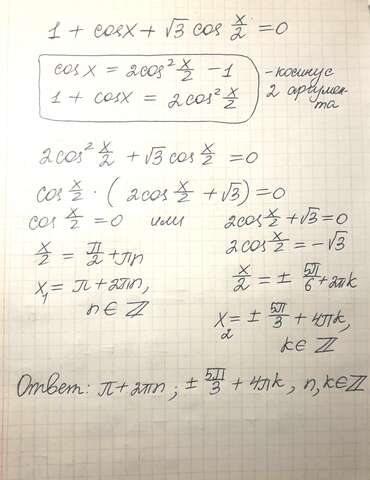 1 + cosx + √3 cos x/2 = 0
cosx = 2cos² x/2 - 1
1 + cosx = 2cos² x/2
- косинус
2 аргумен-
та
2cos² x/2 + √3 cos x/2 = 0
cos x/2 · (2cos x/2 + √3) = 0
cos x/2 = 0 или 2cos x/2 + √3 = 0
2cos x/2 = -√3
x/2 = π/2 + πn
x/2 = ± 5π/6 + 2πk
x₁ = π + 2πn,
n ∈ ℤ
x₂ = ± 5π/3 + 4πk,
k ∈ ℤ
Ответ: π + 2πn ; ± 5π/3 + 4πk , n, k ∈ ℤ